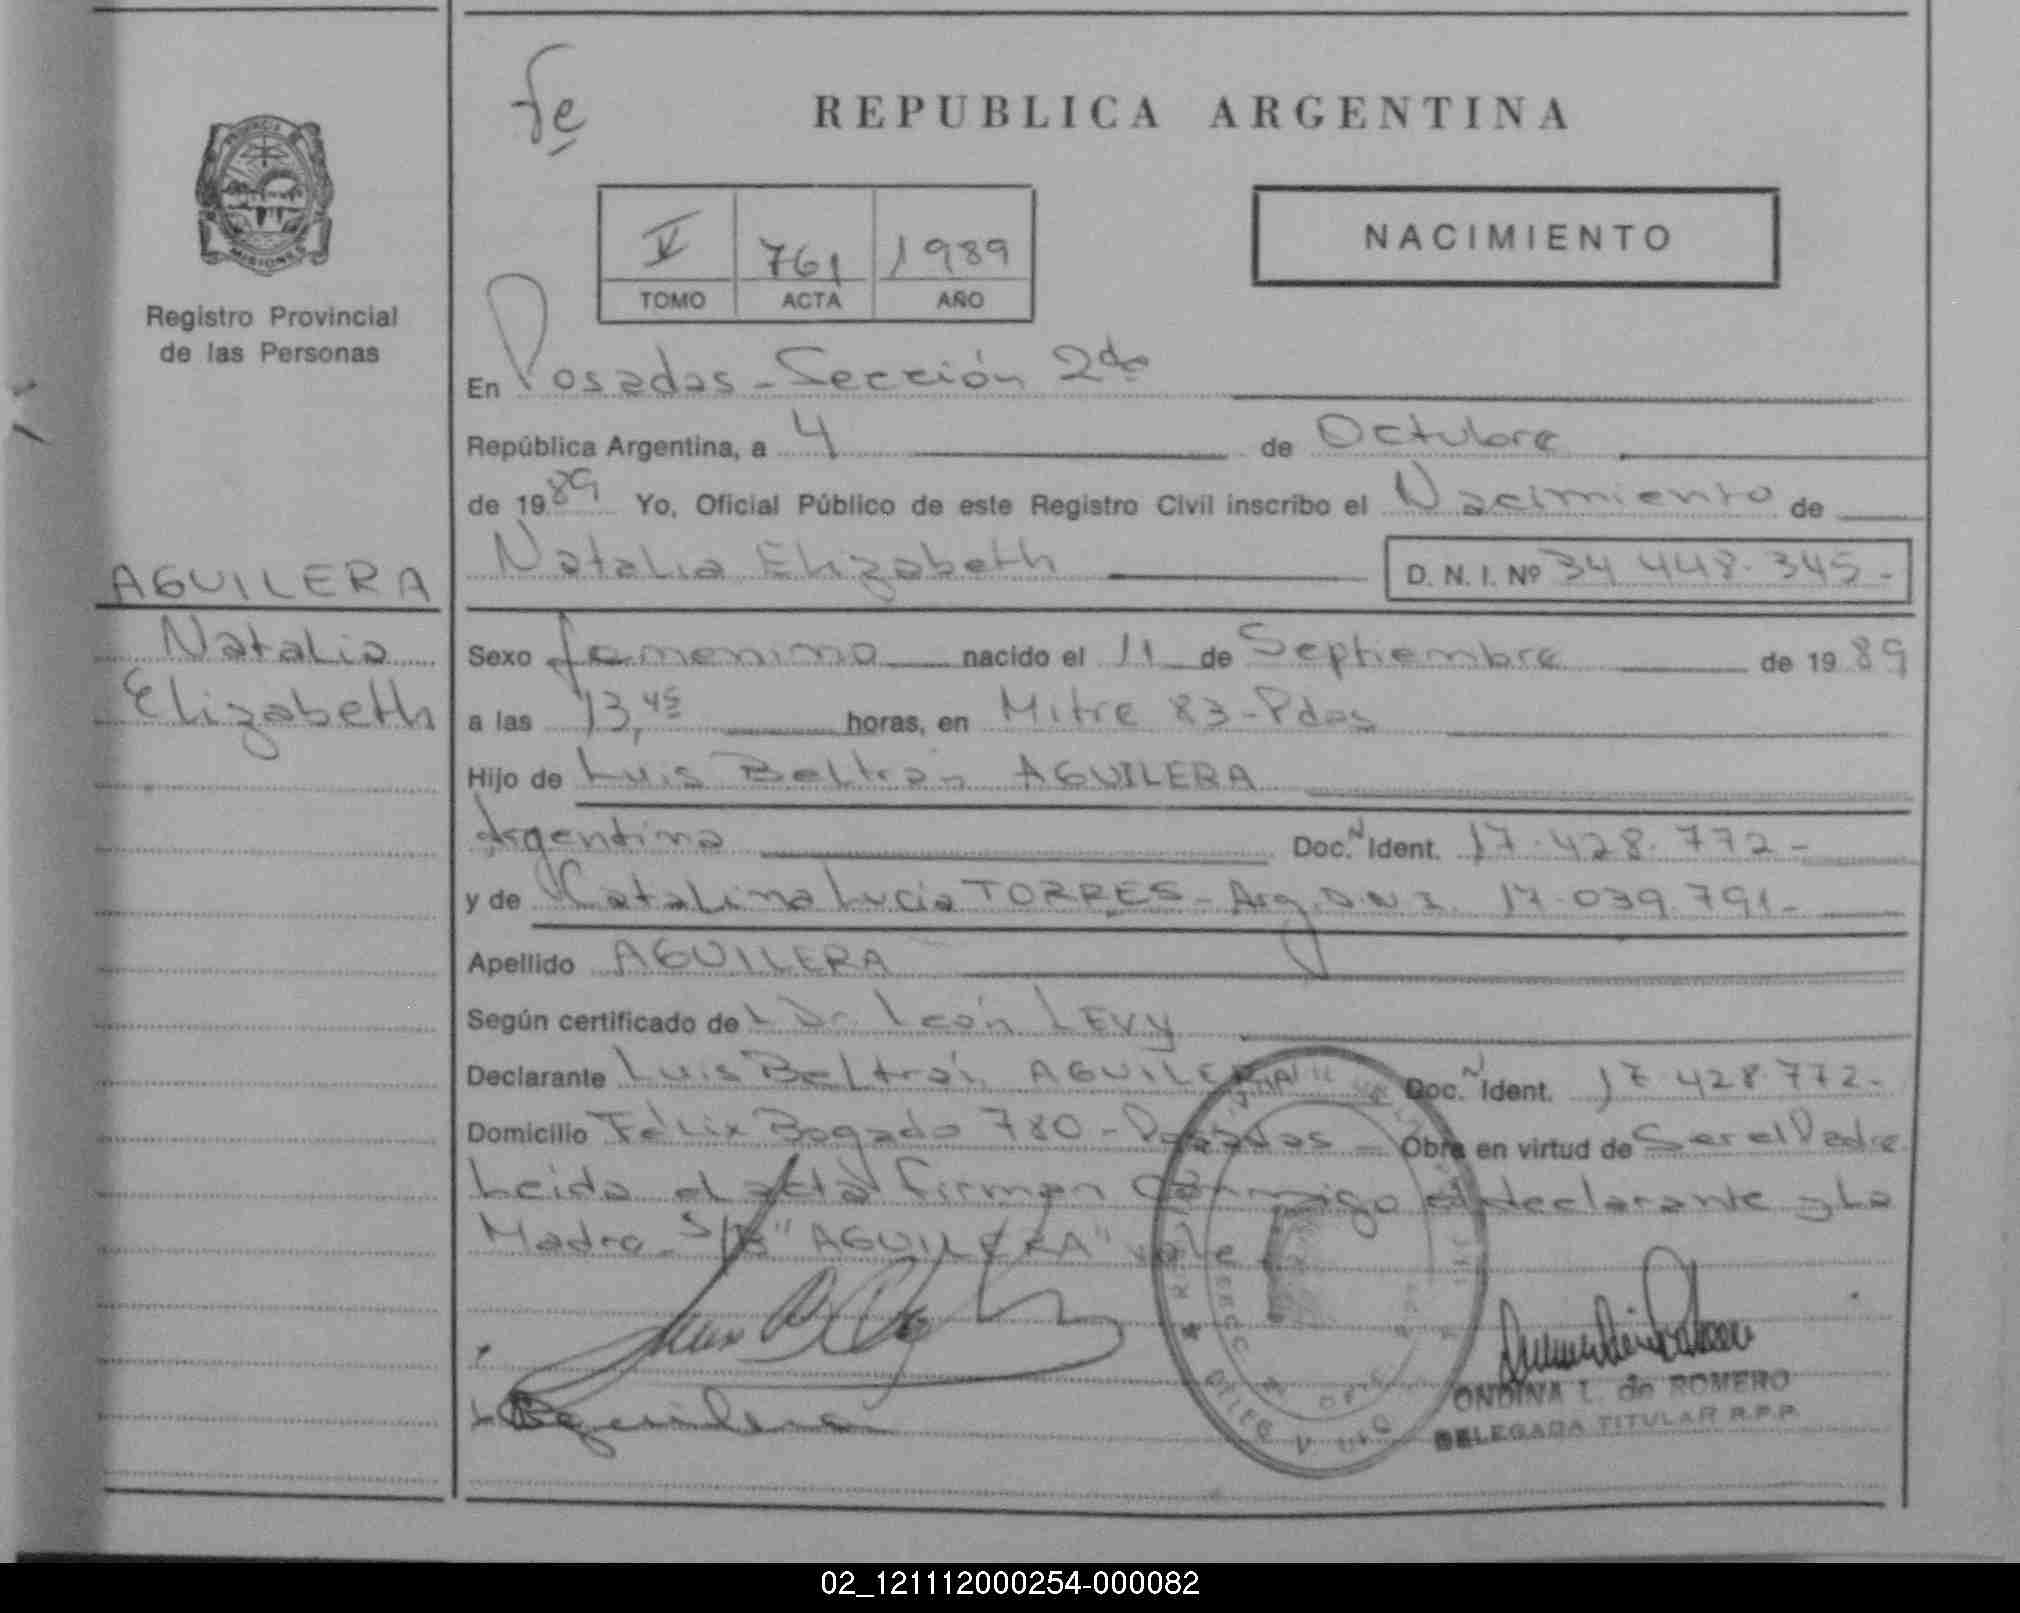 fe
REPUBLICA ARGENTINA
PROVINCIA
MISIONES
Registro Provincial
de las Personas
V 761 1989
TOMO ACTA AÑO
NACIMIENTO
En Posadas - Sección 2da
República Argentina, a 4 de Octubre
de 1989 Yo, Oficial Público de este Registro Civil inscribo el Nacimiento de
Natalia Elizabeth D. N. I. Nº 34 448.345-
AGUILERA
Natalia
Elizabeth
Sexo femenino nacido el 11 de Septiembre de 1989
a las 13,45 horas, en Mitre 83-Pdas
Hijo de Luis Beltrán AGUILERA
Argentina Doc. N Ident. 17.428.772-
y de Catalina Lucia TORRES - Arg. D.N.I. 17.039.791-
Apellido AGUILERA
Según certificado de Dr León LEVY
Declarante Luis Beltrán AGUILERA Doc. N Ident. 17.428.772-
Domicilio Félix Bogado 780 - Posadas - Obra en virtud de Ser el Padre
Leida el acta firman conmigo el declarante y La
Madre - S/R "AGUILERA" vale
Aguilera
ONDINA L. de ROMERO
DELEGADA TITULAR R.P.P.
02_121112000254-000082